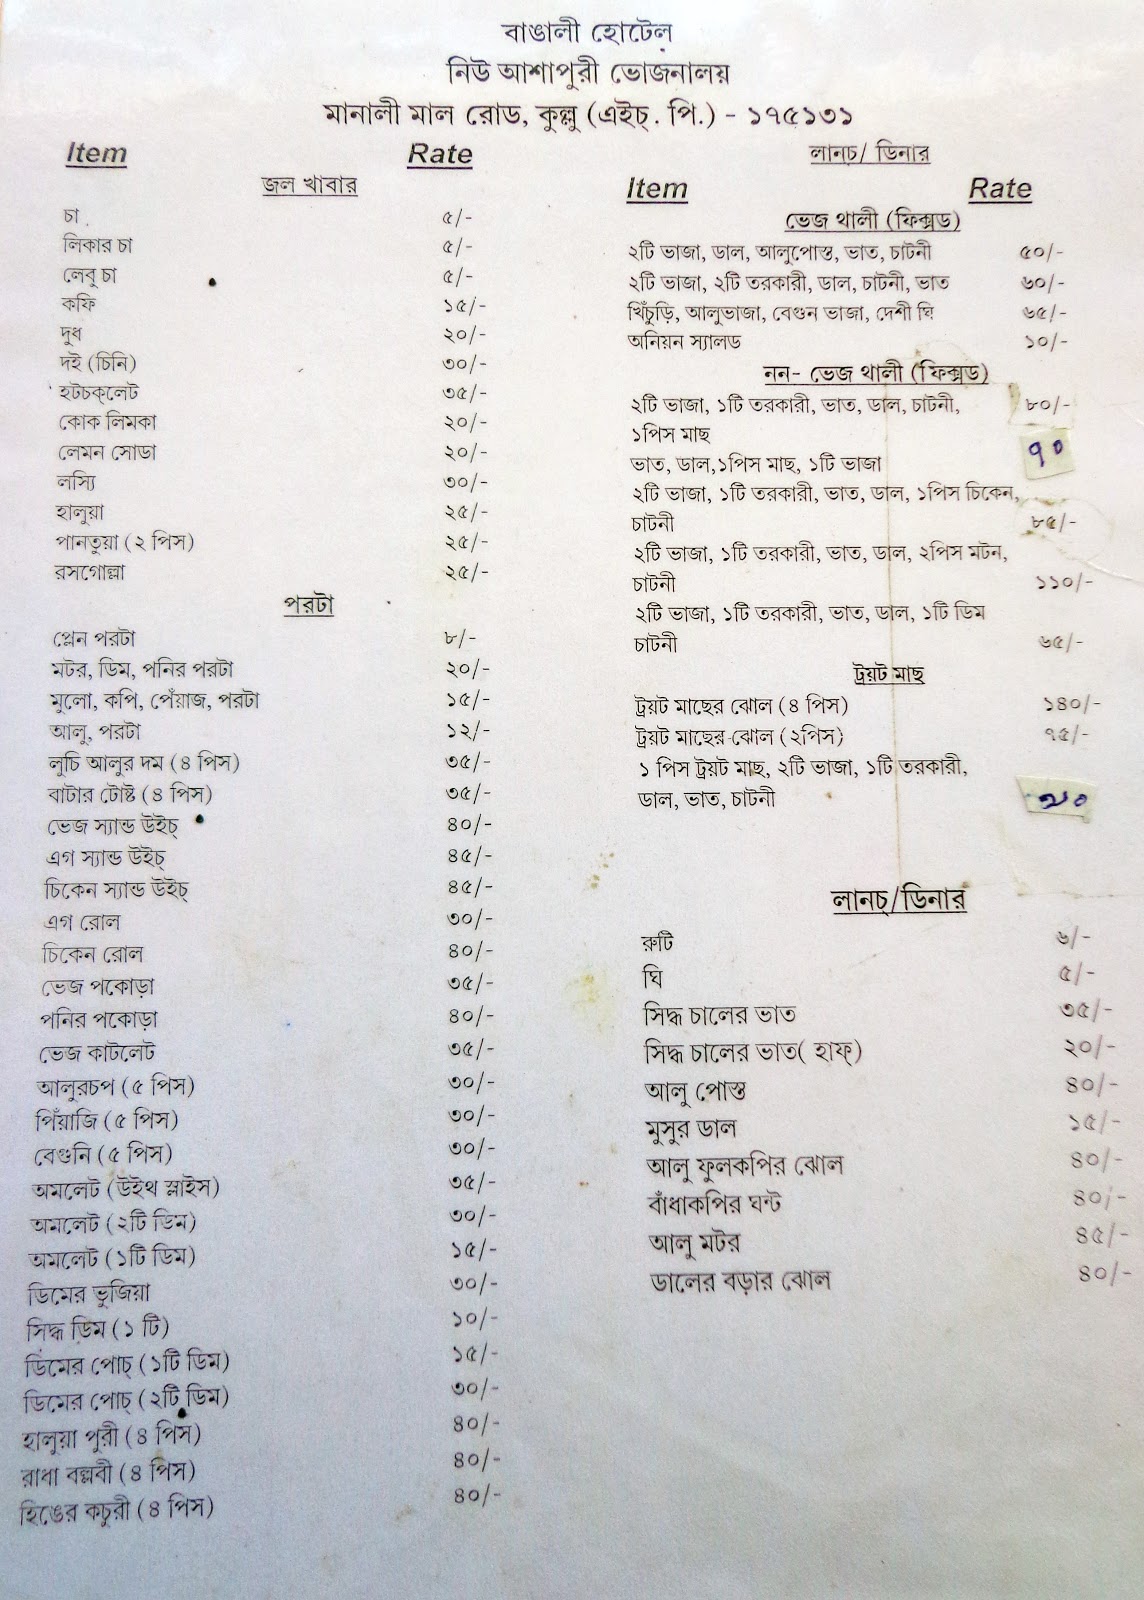 বাঙালী হোটেল
নিউ আশাপুরী ভোজনালয়
মানালী মাল রোড, কুল্লু (এইচ্. পি.) - ১৭৫১৩১
Item Rate
জল খাবার
চা ৫/-
লিকার চা ৫/-
লেবু চা ৫/-
কফি ১৫/-
দুধ ২০/-
দই (চিনি) ৩০/-
হটচক্লেট ৩৫/-
কোক লিমকা ২০/-
লেমন সোডা ২০/-
লস্যি ৩০/-
হালুয়া ২৫/-
পানতুয়া (২ পিস) ২৫/-
রসগোল্লা ২৫/-
পরটা
প্লেন পরটা ৮/-
মটর, ডিম, পনির পরটা ২০/-
মুলো, কপি, পেঁয়াজ, পরটা ১৫/-
আলু, পরটা ১২/-
লুচি আলুর দম (৪ পিস) ৩৫/-
বাটার টোষ্ট (৪ পিস) ৩৫/-
ভেজ স্যান্ড উইচ্ ৪০/-
এগ স্যান্ড উইচ্ ৪৫/-
চিকেন স্যান্ড উইচ্ ৪৫/-
এগ রোল ৩০/-
চিকেন রোল ৪০/-
ভেজ পকোড়া ৩৫/-
পনির পকোড়া ৪০/-
ভেজ কাটলেট ৩৫/-
আলুরচপ (৫ পিস) ৩০/-
পিঁয়াজি (৫ পিস) ৩০/-
বেগুনি (৫ পিস) ৩০/-
অমলেট (উইথ স্লাইস) ৩৫/-
অমলেট (২টি ডিম) ৩০/-
অমলেট (১টি ডিম) ১৫/-
ডিমের ভুজিয়া ৩০/-
সিদ্ধ ডিম (১ টি) ১০/-
ডিমের পোচ্ (১টি ডিম) ১৫/-
ডিমের পোচ্ (২টি ডিম) ৩০/-
হালুয়া পুরী (৪ পিস) ৪০/-
রাধা বল্লবী (৪ পিস) ৪০/-
হিঙের কচুরী (৪ পিস) ৪০/-
লানচ/ ডিনার
Item Rate
ভেজ থালী (ফিক্সড)
২টি ভাজা, ডাল, আলুপোস্ত, ভাত, চাটনী ৫০/-
২টি ভাজা, ২টি তরকারী, ডাল, চাটনী, ভাত ৬০/-
খিঁচুড়ি, আলুভাজা, বেগুন ভাজা, দেশী ঘি ৬৫/-
অনিয়ন স্যালড ১০/-
নন- ভেজ থালী (ফিক্সড)
২টি ভাজা, ১টি তরকারী, ভাত, ডাল, চাটনী, ৮০/-
১পিস মাছ
ভাত, ডাল,১পিস মাছ, ১টি ভাজা ৭০
২টি ভাজা, ১টি তরকারী, ভাত, ডাল, ১পিস চিকেন,
চাটনী ৮৫/-
২টি ভাজা, ১টি তরকারী, ভাত, ডাল, ২পিস মটন,
চাটনী ১১০/-
২টি ভাজা, ১টি তরকারী, ভাত, ডাল, ১টি ডিম
চাটনী ৬৫/-
ট্রয়ট মাছ
ট্রয়ট মাছের ঝোল (৪ পিস) ১৪০/-
ট্রয়ট মাছের ঝোল (২পিস) ৭৫/-
১ পিস ট্রয়ট মাছ, ২টি ভাজা, ১টি তরকারী,
ডাল, ভাত, চাটনী
লানচ্/ডিনার
রুটি ৬/-
ঘি ৫/-
সিদ্ধ চালের ভাত ৩৫/-
সিদ্ধ চালের ভাত( হাফ্) ২০/-
আলু পোস্ত ৪০/-
মুসুর ডাল ১৫/-
আলু ফুলকপির ঝোল ৪০/-
বাঁধাকপির ঘন্ট ৪০/-
আলু মটর ৪৫/-
ডালের বড়ার ঝোল ৪০/-